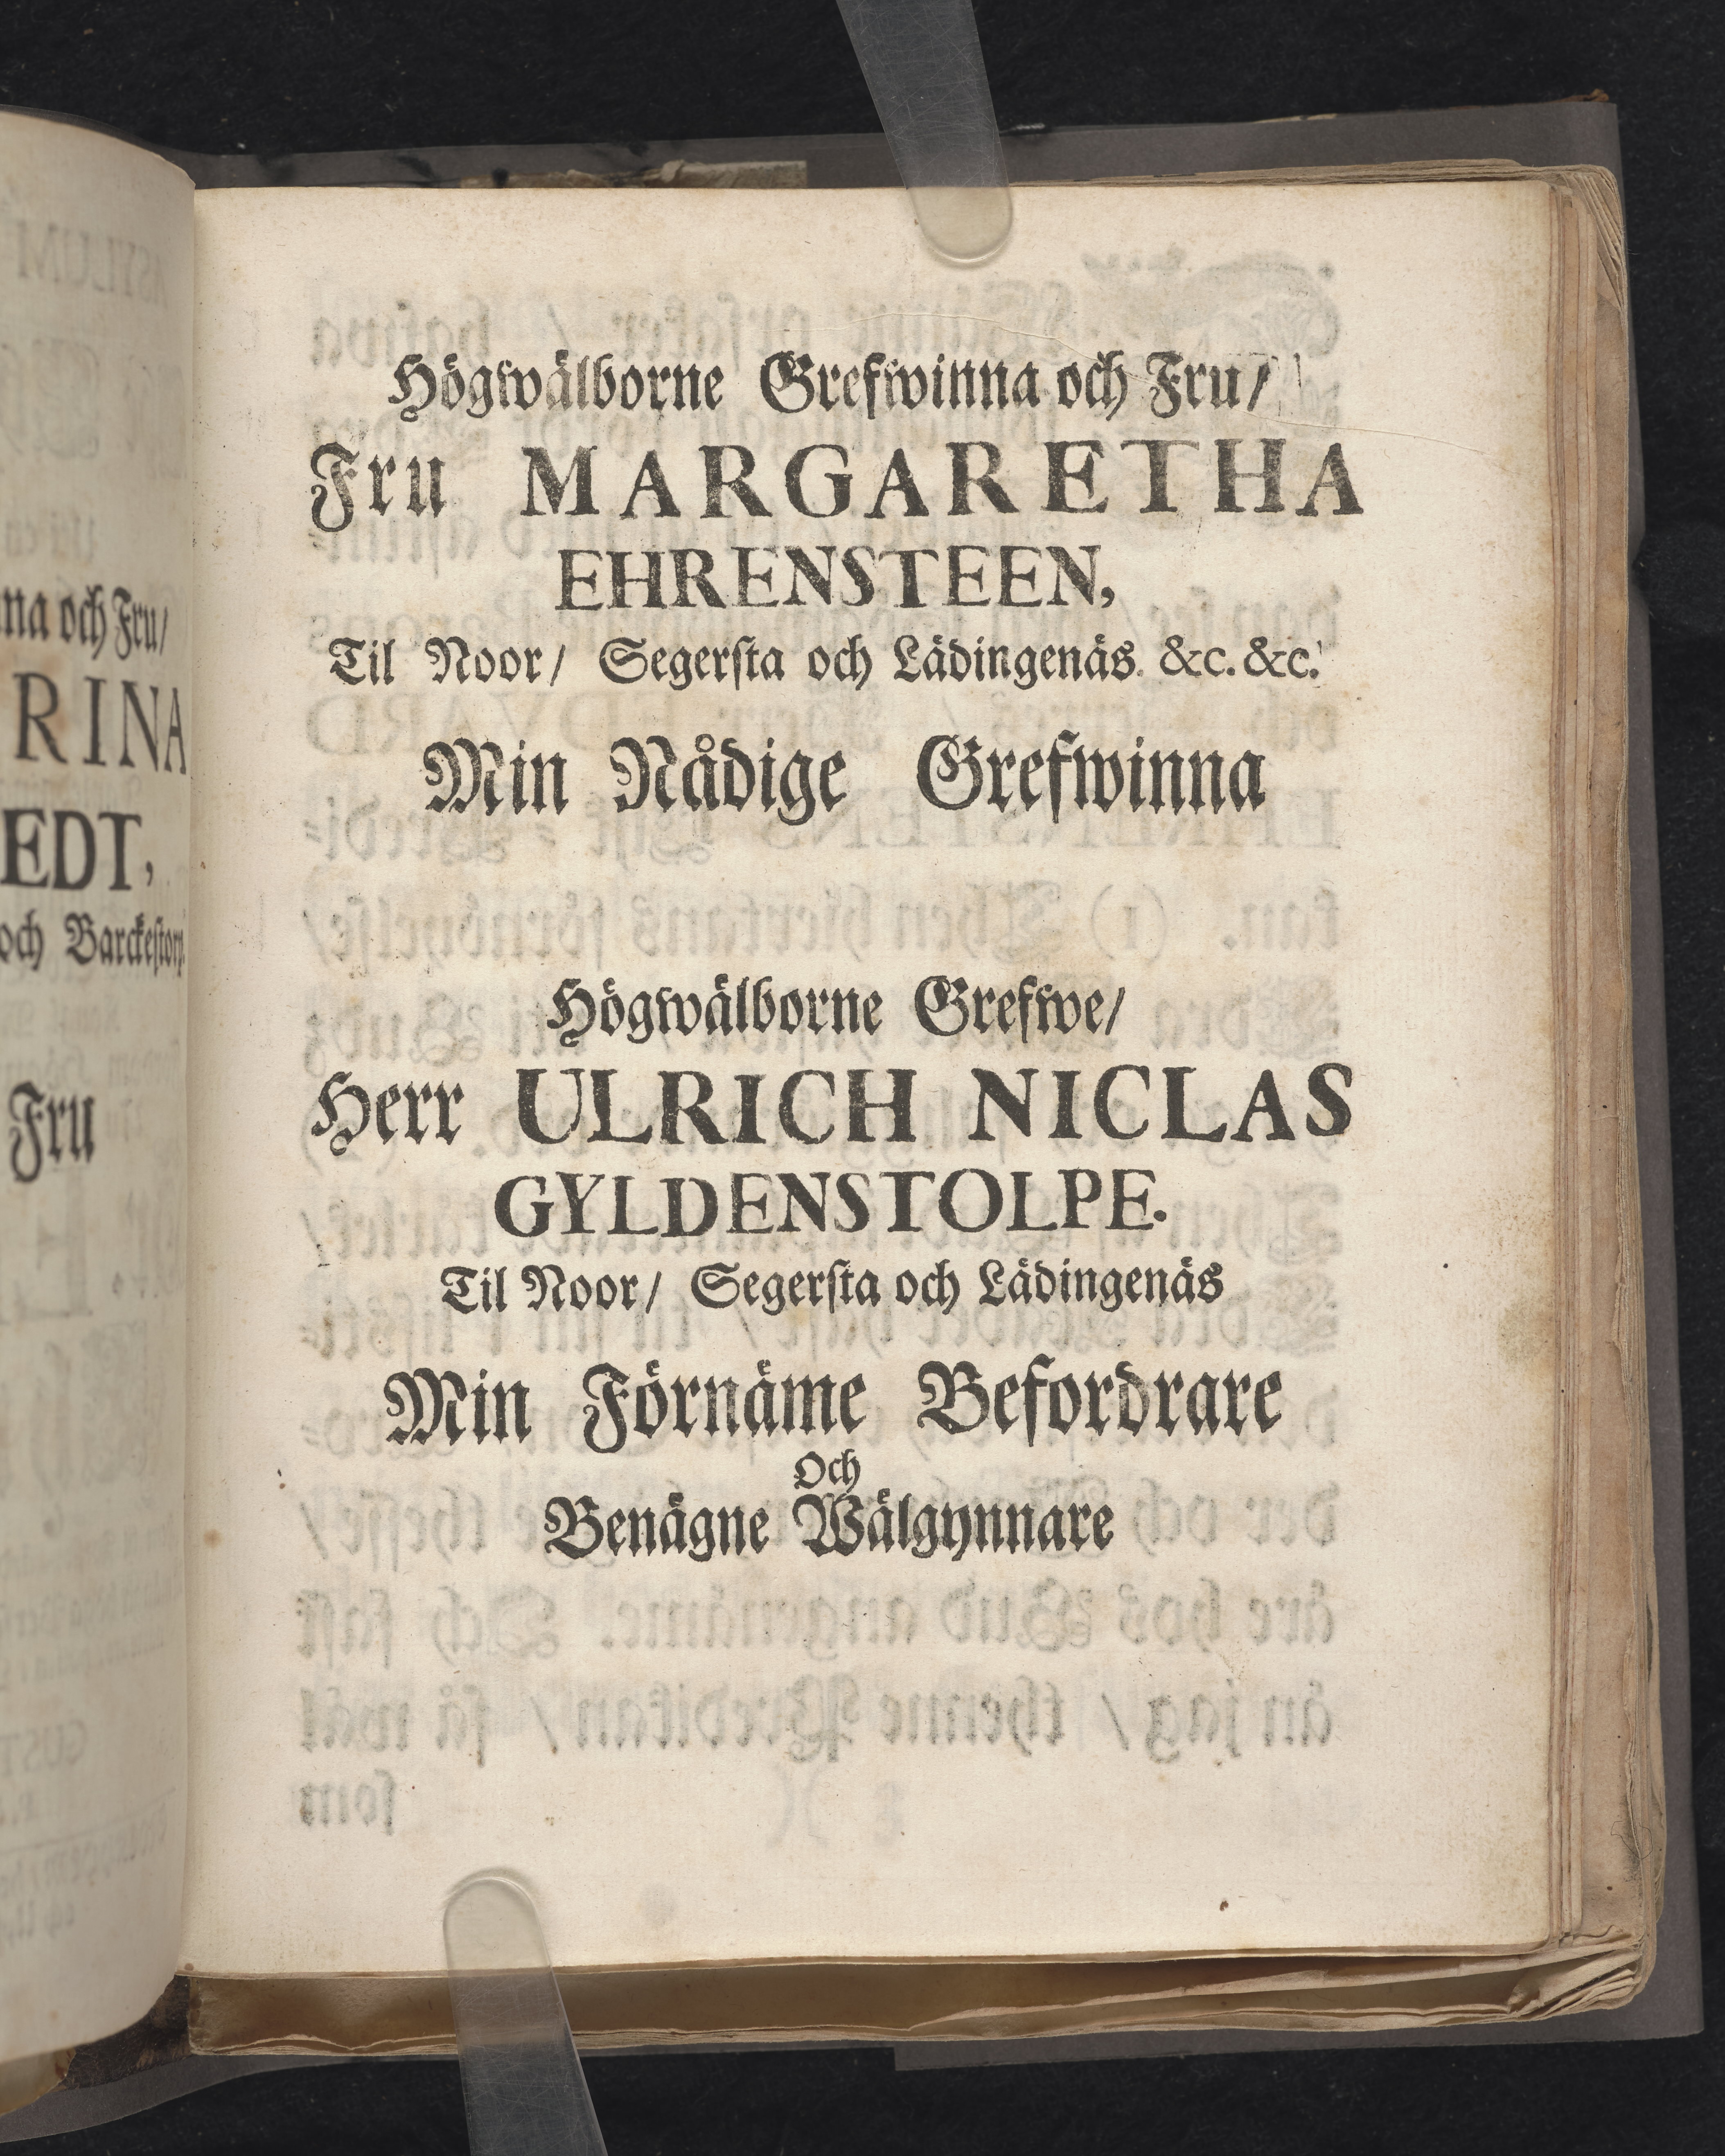 na och Fru/
RINA
EDT,
och Barckestorp
Fru
Högwälborne Grefwinna och Fru/
Fru MARGARETHA
EHRENSTEEN,
Til Noor/ Segersta och Lädingenäs. &c. &c.
Min Nådige Grefwinna
Högwälborne Grefwe/
Herr ULRICH NICLAS
GYLDENSTOLPE.
Til Noor/ Segersta och Lädingenäs
Min Förnäme Befordrare
Och
Benägne Wälgynnare